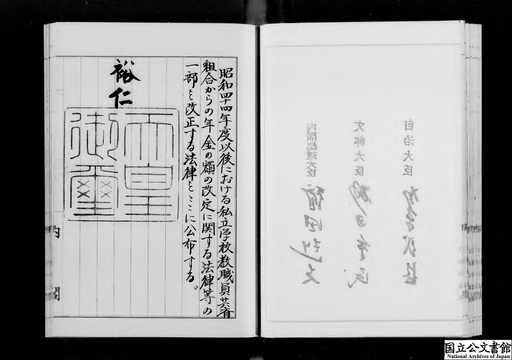 自治大臣
文部大臣 砂田重民
内閣総理大臣 福田赳夫
昭和四十四年度以後における私立学校教職員共済
組合からの年金の額の改定に関する法律等の
一部を改正する法律をここに公布する。
裕仁
天皇
御璽
内閣
国立公文書館
National Archives of Japan